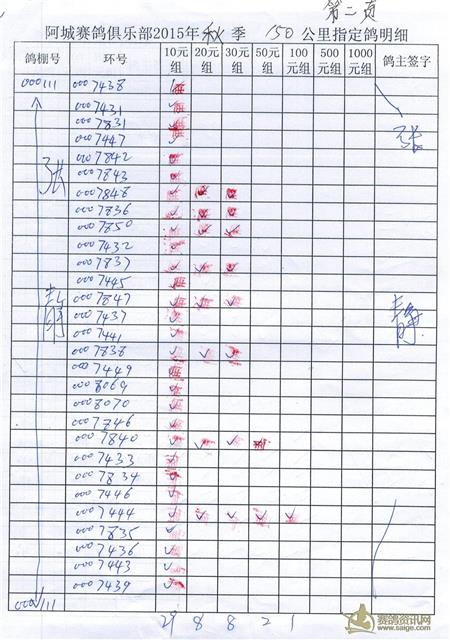 第二页
阿城赛鸽俱乐部2015年秋季 150 公里指定鸽明细
鸽棚号 环号 10元组 20元组 30元组 50元组 100元组 500元组 1000元组 鸽主签字
000111 0007438 ✓
0007431 ✓
0007831 ✓
张 0007447 ✓ 张
0007842 ✓
0007843 ✓
0007848 ✓ ✓ ✓
0007836 ✓ ✓ ✓
0007850 ✓ ✓ ✓
0007432 ✓
0007837 ✓ ✓ ✓
0007445 ✓
静 0007847 ✓ ✓ ✓ 静
0007437 ✓
0007441 ✓
0007838 ✓ ✓ ✓
0007449 ✓
0008069 ✓
0008070 ✓
0007846 ✓
0007840 ✓ ✓ ✓ ✓
0007433 ✓
0007834 ✓
0007446 ✓
0007444 ✓ ✓ ✓ ✓ ✓
0007835 ✓
0007436 ✓
0007443 ✓
0007439 ✓
000111
29 8 8 2 1
赛鸽资讯网
www.saige.com